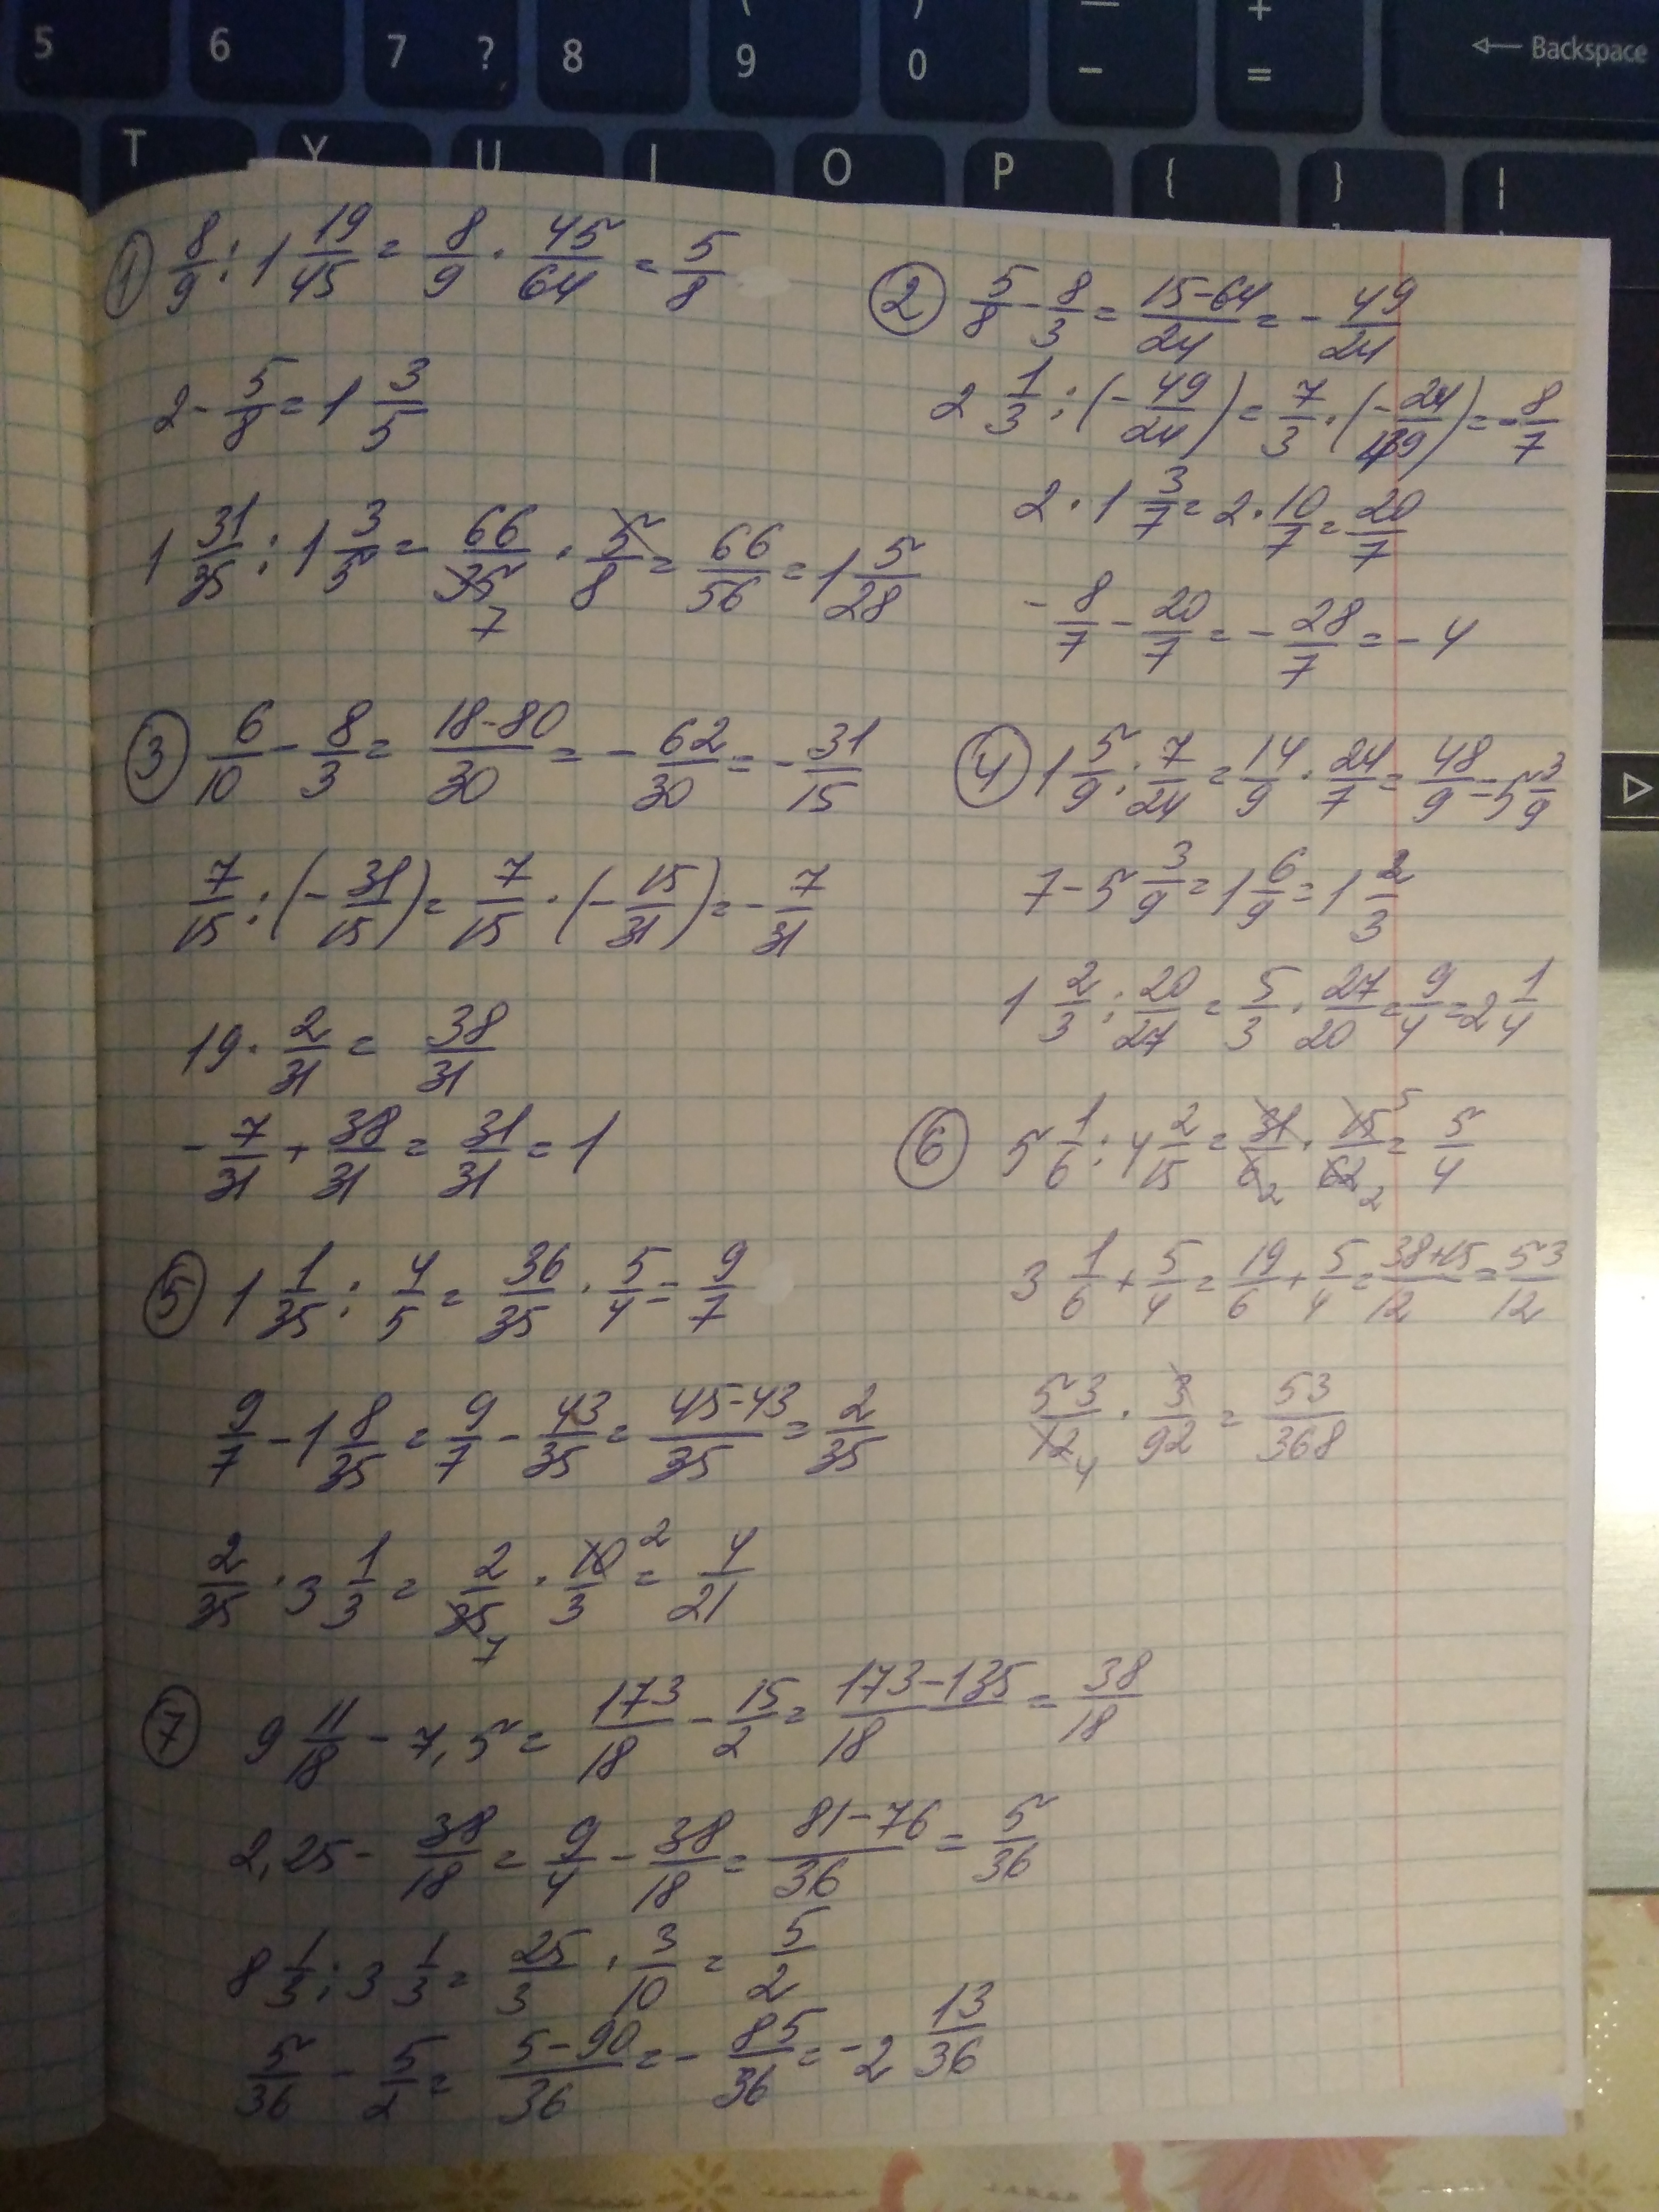 5 6 7 ? 8 ( 9 ) 0 — - + = Backspace
T Y U I O P { } |
① 8/9 : 1 19/45 = 8/9 · 45/64 = 5/8
2 - 5/8 = 1 3/5
1 31/35 : 1 3/5 = 66/35 · 5/8 = 66/56 = 1 5/28
7
② 5/8 - 8/3 = (15-64)/24 = - 49/24
2 1/3 : (- 49/24) = 7/3 · (- 24/49) = - 8/7
2 · 1 3/7 = 2 · 10/7 = 20/7
- 8/7 - 20/7 = - 28/7 = - 4
③ 6/10 - 8/3 = (18-80)/30 = - 62/30 = - 31/15
7/15 : (- 31/15) = 7/15 · (- 15/31) = - 7/31
19 · 2/31 = 38/31
- 7/31 + 38/31 = 31/31 = 1
④ 1 5/9 : 7/24 = 14/9 · 24/7 = 48/9 = 5 3/9
7 - 5 3/9 = 1 6/9 = 1 2/3
1 2/3 : 20/27 = 5/3 · 27/20 = 9/4 = 2 1/4
⑤ 1 1/35 : 4/5 = 36/35 · 5/4 = 9/7
9/7 - 1 8/35 = 9/7 - 43/35 = (45-43)/35 = 2/35
2/35 · 3 1/3 = 2/35 · 10/3 = 4/21
7 2
⑥ 5 1/6 : 4 2/15 = 31/6 · 15/62 = 5/4
2 5 2
3 1/6 + 5/4 = 19/6 + 5/4 = (38+15)/12 = 53/12
53/12 · 3/92 = 53/368
4
⑦ 9 11/18 - 7,5 = 173/18 - 15/2 = (173-135)/18 = 38/18
2,25 - 38/18 = 9/4 - 38/18 = (81-76)/36 = 5/36
8 1/3 : 3 1/3 = 25/3 · 3/10 = 5/2
5/36 - 5/2 = (5-90)/36 = - 85/36 = - 2 13/36